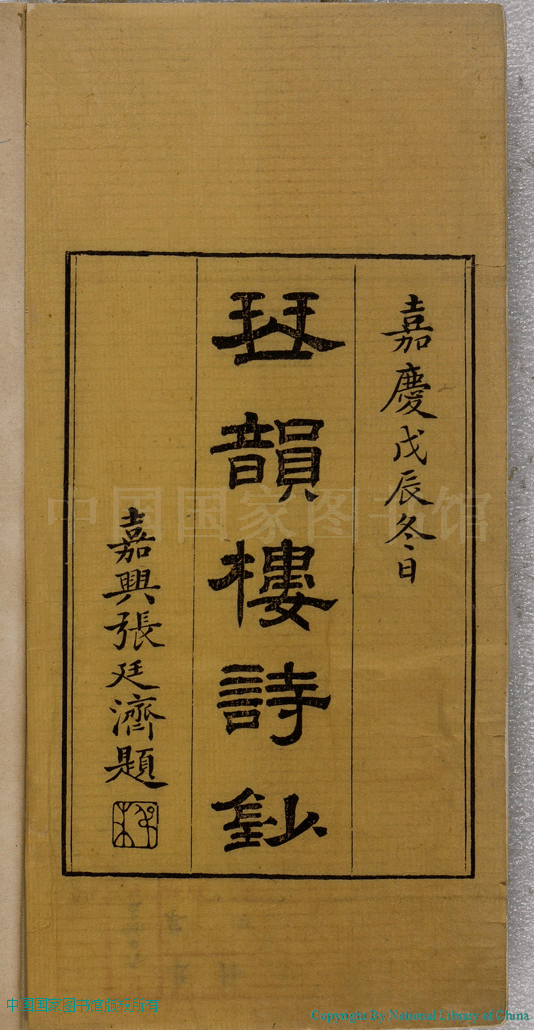 嘉慶戊辰冬日
琴韻樓詩鈔
嘉興張廷濟題
中国国家图书馆
中国国家图书馆版权所有
Copyright By National Library of China